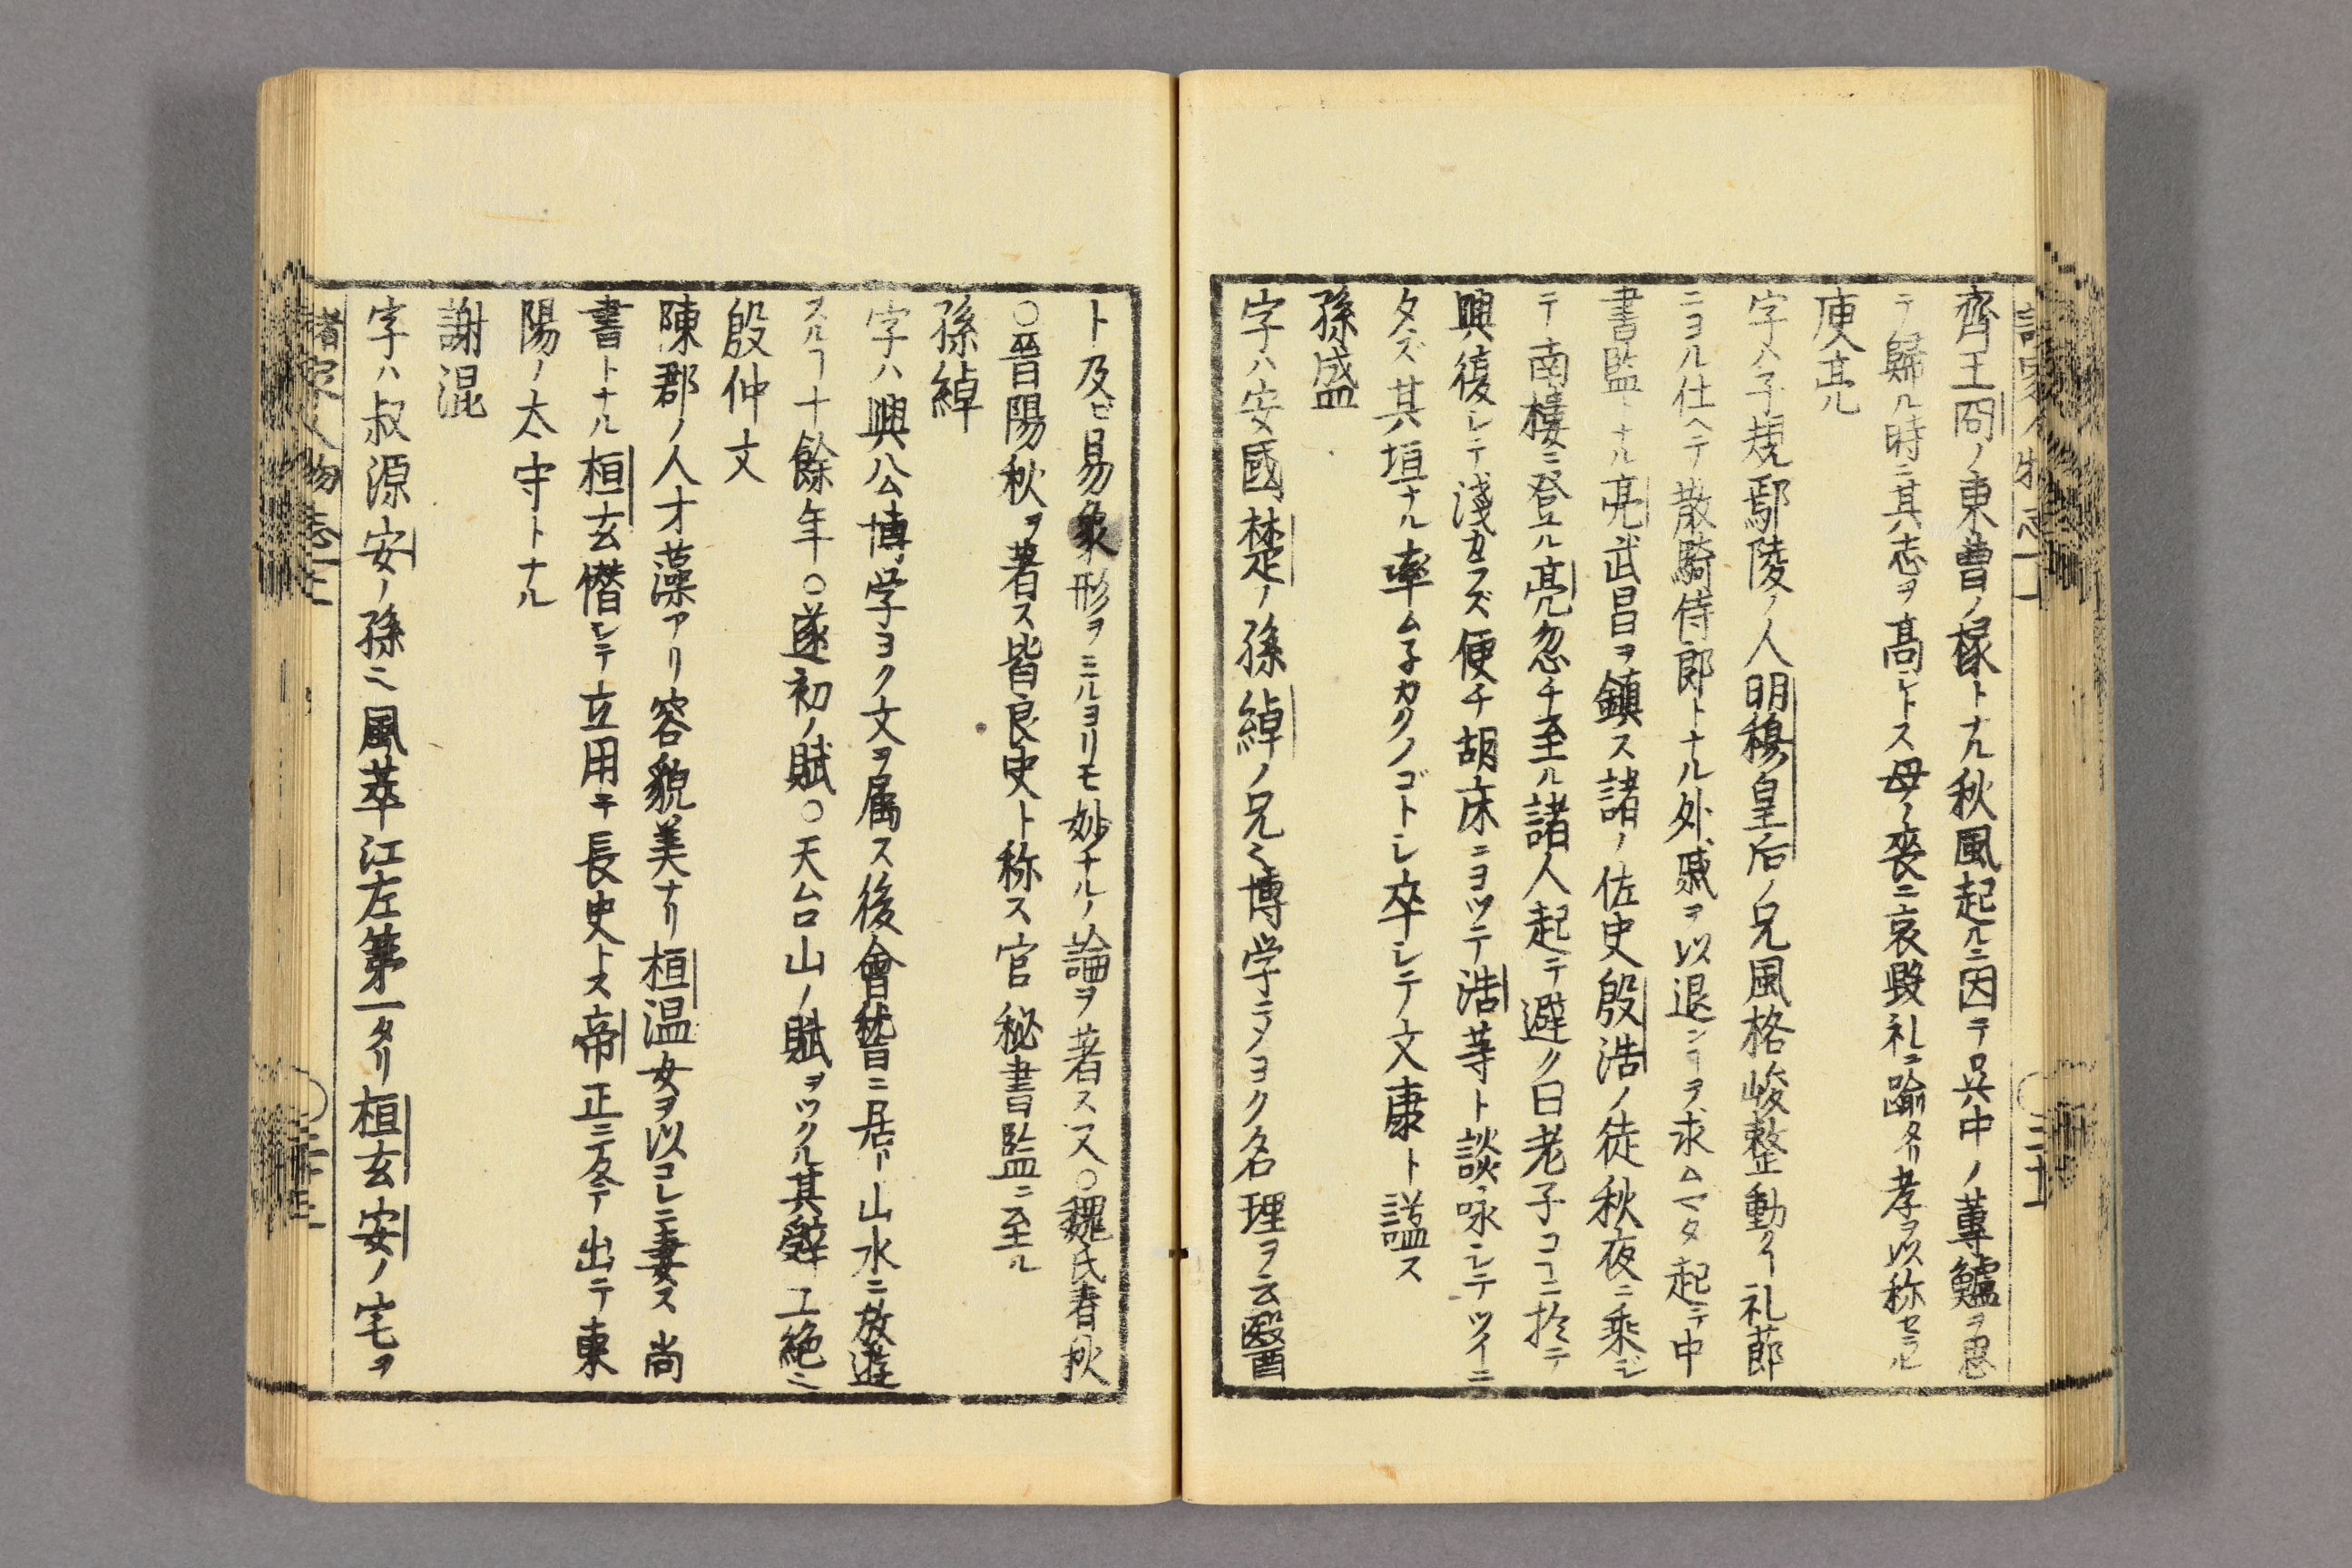 齊王冏ノ東曹ノ掾トナル秋風起ルニ因テ呉中ノ蓴鱸ヲ思
テ歸ル時ニ其志ヲ髙シトス母ノ喪ニ哀毀礼ニ踰タリ孝ヲ以称セラル
庾亮
字ハ子規鄢陵ノ人明穆皇后ノ兄風格峻整動クヿ礼莭
ニヨル仕ヘテ散騎侍郎トナル外戚ヲ以退ンヿヲ求ムマタ起テ中
書監トナル亮武昌ヲ鎮ス諸ノ佐史殷浩ノ徒秋夜ニ乘ジ
テ南樓ニ登ル亮忽チ至ル諸人起テ避ク曰老子コヽニ於テ
興復シテ淺カラズ便チ胡床ニヨツテ浩等ト談咏シテツイニ
タズ其坦ナル率ム子カクノゴトシ卒シテ文康ト謚ス
孫盛
字ハ安國楚ノ孫綽ノ兄也博学ニシテヨク名理ヲ云醫
ト及ビ易象形ヲミルヨリモ妙ナルノ論ヲ著ス又○魏氏春秋
○晉陽秋ヲ著ス皆良史ト称ス官秘書監ニ至ル
孫綽
字ハ興公博学ヨク文ヲ属ス後會嵇ニ居ㇼ山水ニ放遊
スルヿ十餘年○遂初ノ賦○天台山ノ賦ヲツクル其辤工絶也
殷仲文
陳郡ノ人才藻アリ容貌美ナリ桓温女ヲ以コレニ妻ス尚
書トナル桓玄僭シテ立用テ長史トス帝正ニ反テ出テ東
陽ノ太守トナル
謝混
字ハ叔源安ノ孫也風華江左第一タリ桓玄安ノ宅ヲ
諸家人物志上